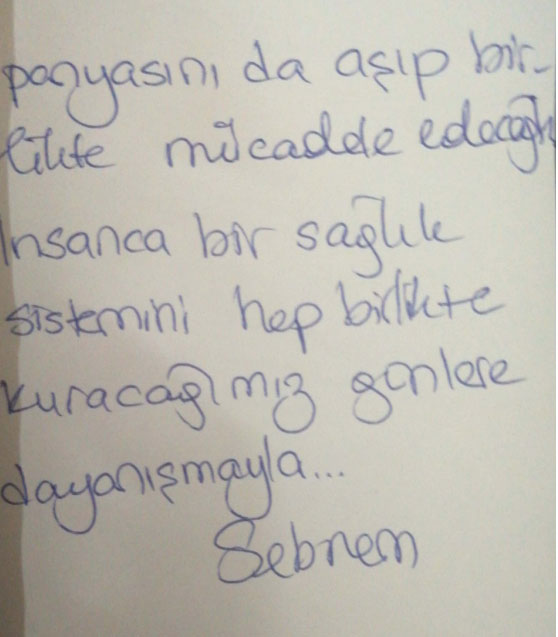 panyasını da aşıp bir-
likte mücadde edeceği
İnsanca bir sağlık
sistemini hep birlikte
kuracağımız günlere
dayanışmayla...
Şebnem